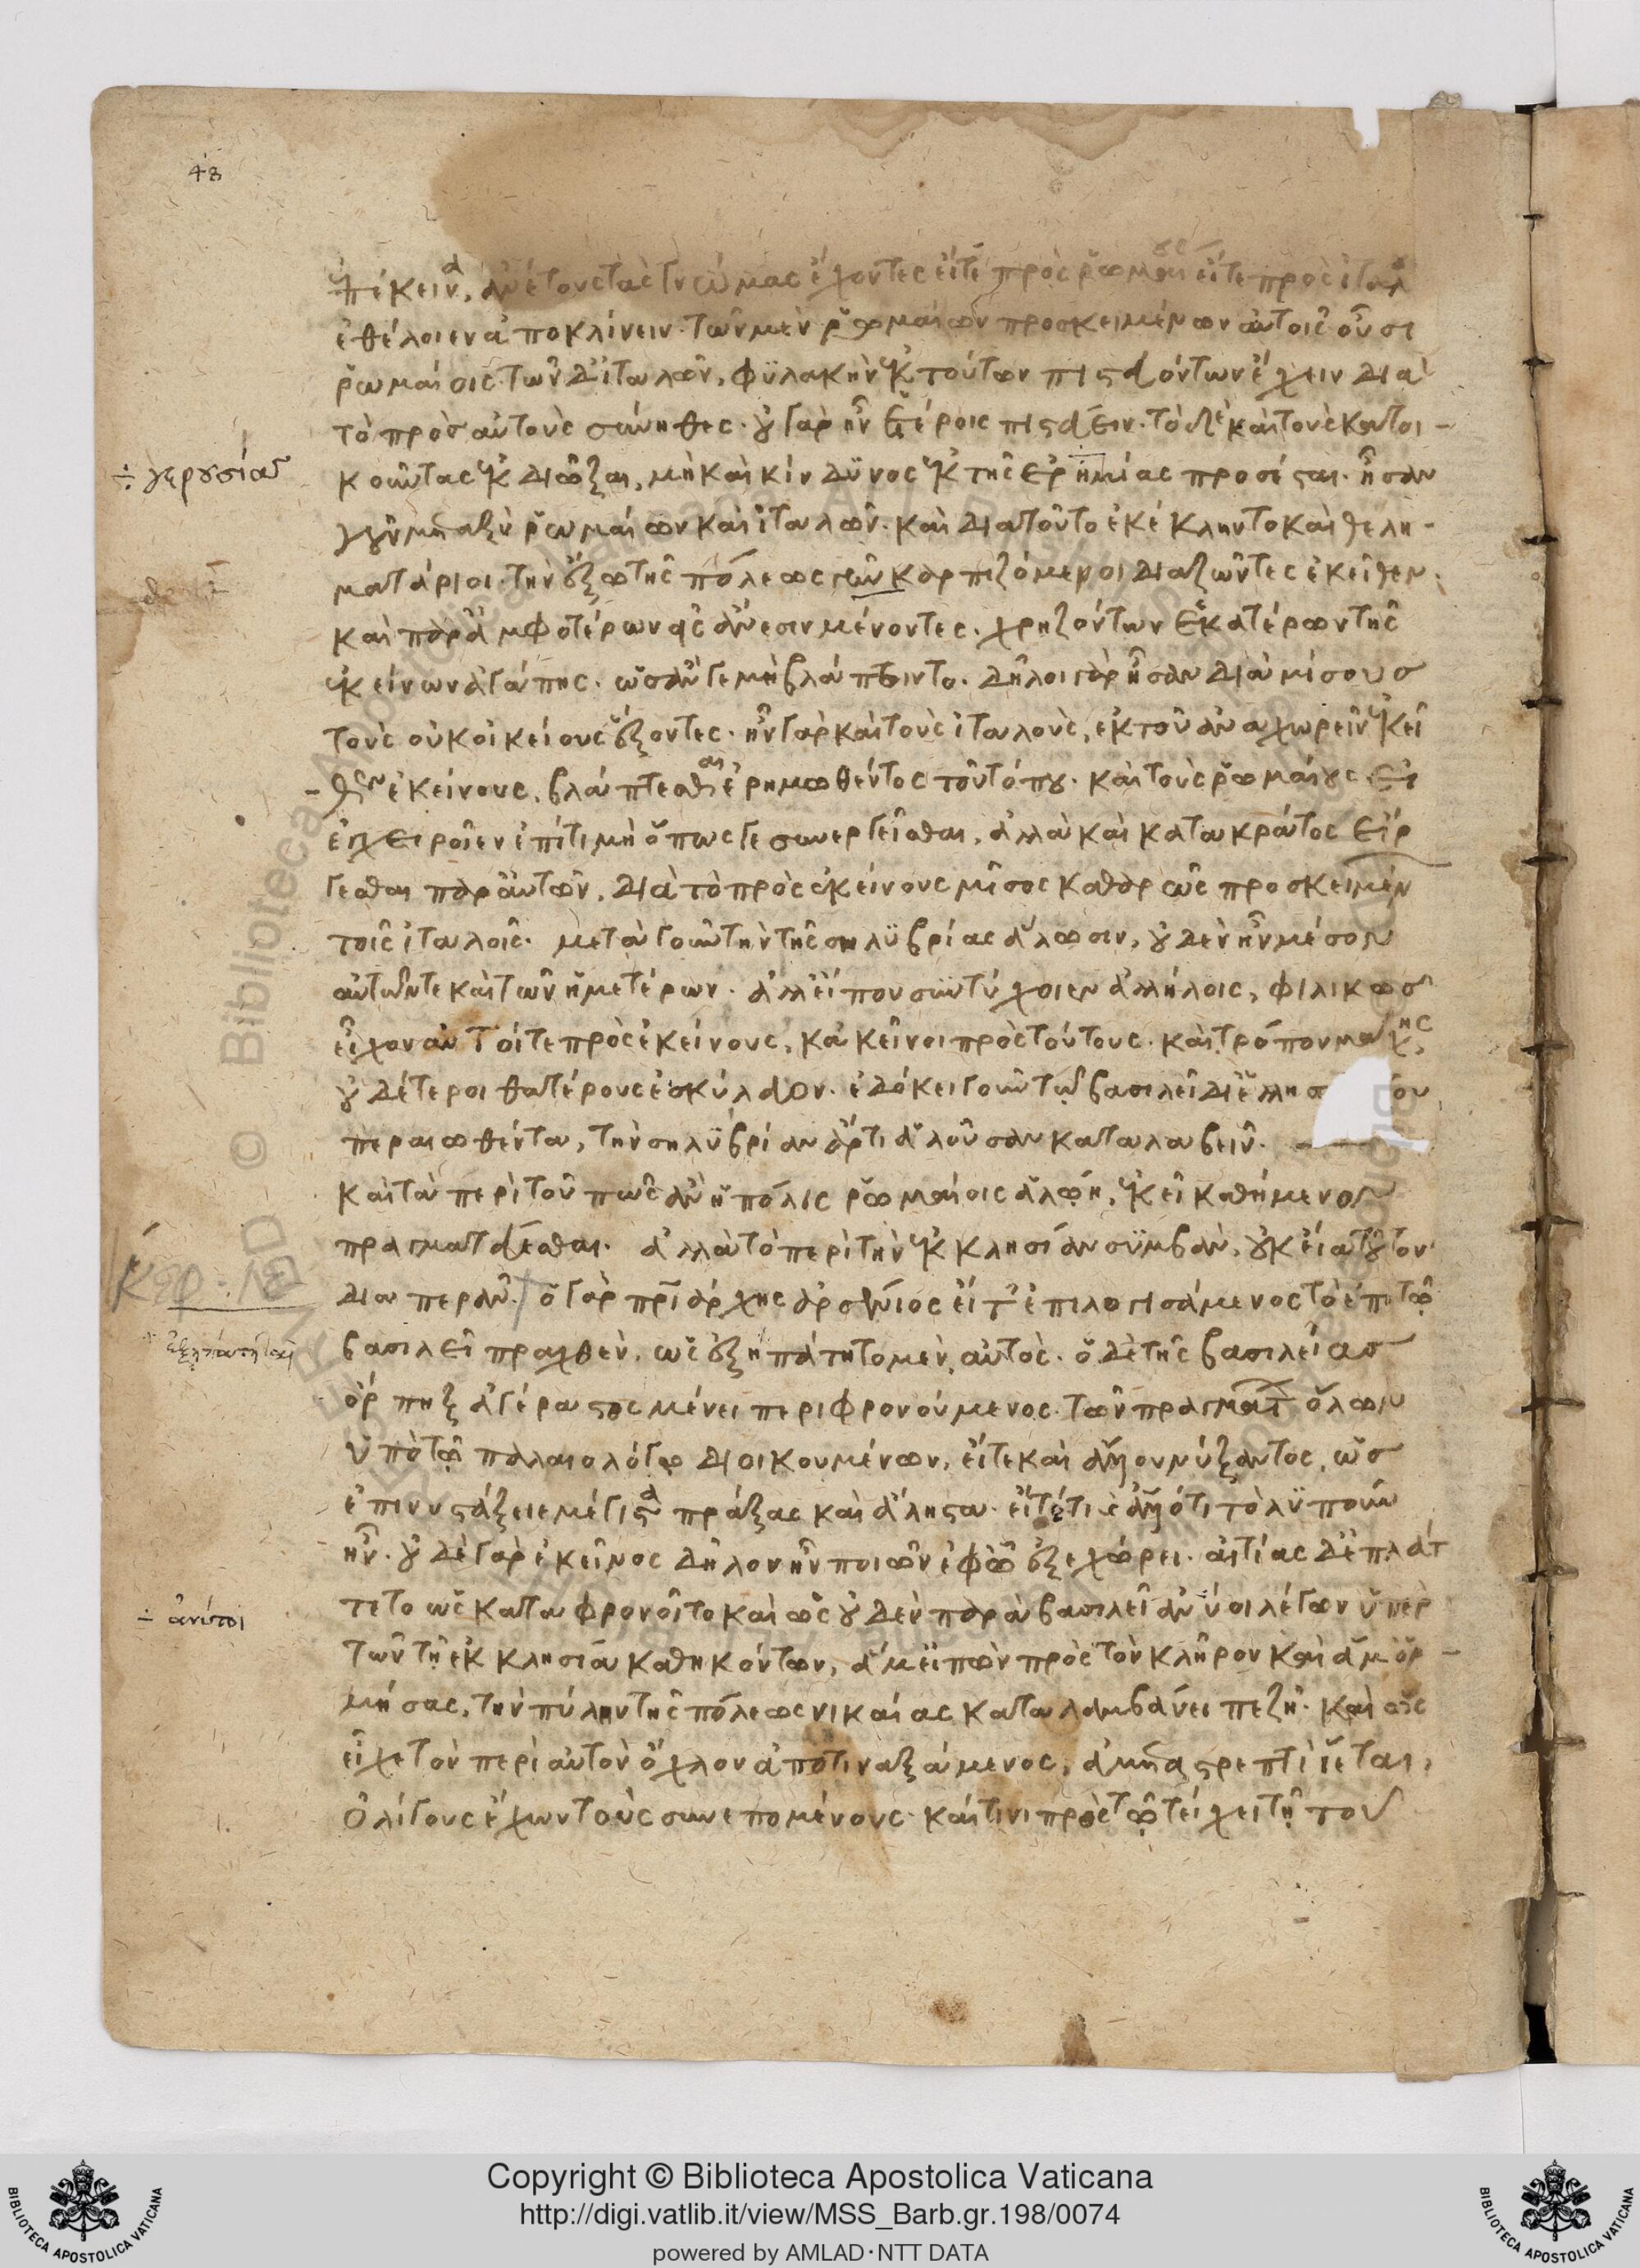 48
ἐπέκεινα, ἀνέτους τὰς γνώμας ἔχοντες εἴτε πρὸς ῥωμαίους εἴτε πρὸς ἰταλοὺς
ἐθέλοιεν ἀποκλίνειν· τῶν μὲν ῥωμαίων προσκειμένων αὐτοῖς οὖσι
ῥωμαίοις· τῶν δ' ἰταλῶν, φυλακὴν ἐκ τούτων πιστευόντων ἔχειν διὰ
τὸ πρὸς αὐτοὺς σύνηθες· οὐ γὰρ ἦν ἑτέροις πιστεύειν· τὸ δὲ καὶ τοὺς κατοι-
÷ γερουσίας
κοῦντας ἐκδιῶξαι, μὴ καὶ κίνδυνος ἐκ τῆς ἐρημίας προσίσται· ἦσαν
γοῦν μεταξὺ ῥωμαίων καὶ ἰταλῶν· καὶ διατοῦτο ἐκέκληντο καὶ θελη-
ματάριοι· τὴν ἔξω τῆς πόλεως γῆν καρπιζόμενοι διαζῶντες ἐκεῖθεν·
καὶ παρ' ἀμφοτέρων ἐς ἄνεσιν μένοντες· χρηζόντων ἑκατέρων τῆς
ἐκείνων ἀγάπης· ὡς ἄν γε μὴ βλάπτοιντο. δῆλοι γὰρ ἦσαν διὰ μίσους
τοὺς οὐκ οἰκείους ἕξοντες· ἦν γὰρ καὶ τοὺς ἰταλοὺς, ἐκ τοῦ ἀναχωρεῖν ἐκεῖ
θεν ἐκείνους, βλάπτεσθαι ἐρημωθέντος τοῦ τόπου· καὶ τοὺς ῥωμαίους εἰ
ἐγχειροῖεν ἐπί τι μὴ ὅπως γε συνεργεῖσθαι, ἀλλὰ καὶ κατακράτος εἴρ
γεσθαι παρ' αὐτῶν, διὰ τὸ πρὸς ἐκείνους μῖσος καθαρῶς προσκειμέν
τοῖς ἰταλοῖς· μετὰ γοῦν τὴν τῆς σηλυβρίας ἅλωσιν, οὐδὲν ἦν μέσον
αὐτῶν τε καὶ τῶν ἡμετέρων· ἀλλ' εἴ που συντύχοιεν ἀλλήλοις, φιλικῶς
εἶχον αὐτοί τε πρὸς ἐκείνους, κἀκεῖνοι πρὸς τούτους· καὶ τρόπον μάχης
οὐδέτεροι θατέρους ἔσκυλλον. ἐδόκει γοῦν τῷ βασιλεῖ δι' ἑλλησ
περαιωθέντα, τὴν σηλυβρίαν ἄρτι ἁλοῦσαν καταλαβεῖν.
καὶ τὰ περὶ τοῦ πῶς ἂν ἡ πόλις ῥωμαίοις ἁλῴη, ἐκεῖ καθήμενος
πραγματεύεσθαι. ἀλλὰ τὸ περὶ τὴν ἐκκλησίαν συμβὰν, οὐκ εἴα τοῦτον
διαπερᾶν. ὁ γὰρ πατριάρχης ἀρσένιος εἴτ' ἐπιλογισάμενος τὸ ἐπὶ τῷ
÷ ἐξηπάτητο
βασιλεῖ πραχθὲν, ὡς ἐξηπάτητο μὲν αὐτὸς· ὁ δὲ τῆς βασιλείας
ὄρπηξ ἀγέραστος μένει περιφρονούμενος· τῶν πραγμάτων ὅλων
ὑπὸ τῷ παλαιολόγῳ διοικουμένων, εἴτε καὶ ἄλλου νύξαντος, ὡς
ἐπινυστάξειε μέγιστα πράξας καὶ ἄληστα· εἴτέ τι καὶ ἄλλό τι τὸ λυποῦν
ἦν. οὐδὲ γὰρ ἐκεῖνος δῆλον ἦν ποιῶν ἐφ' ᾧ ἐξεχώρει· αἰτίας δὲ πλάτ
÷ ἀνύτοι
τετο ὡς καταφρονοῖτο καὶ ὡς οὐδὲν παρὰ βασιλεῖ ἀνύοι λέγων ὑπὲρ
τῶν τῇ ἐκκλησίᾳ καθηκόντων, ἅμ' εἰπὼν πρὸς τὸν κλῆρον καὶ ἅμ' ὁρ-
μήσας, τὴν πύλην τῆς πόλεως νικαίας καταλαμβάνει πεζῇ· καὶ ὡς
εἶχε τὸν περὶ αὐτὸν ὄχλον ἀποτιναξάμενος, ἀμεταστρεπτὶ ἵεται,
ὀλίγους ἔχων τοὺς συνεπομένους· καί τινι πρὸς τῷ τείχει τῇ τοῦ
© Biblioteca Apostolica Vaticana
BIBLIOTECA APOSTOLICA VATICANA
Copyright © Biblioteca Apostolica Vaticana
http://digi.vatlib.it/view/MSS_Barb.gr.198/0074
powered by AMLAD·NTT DATA
BIBLIOTECA APOSTOLICA VATICANA